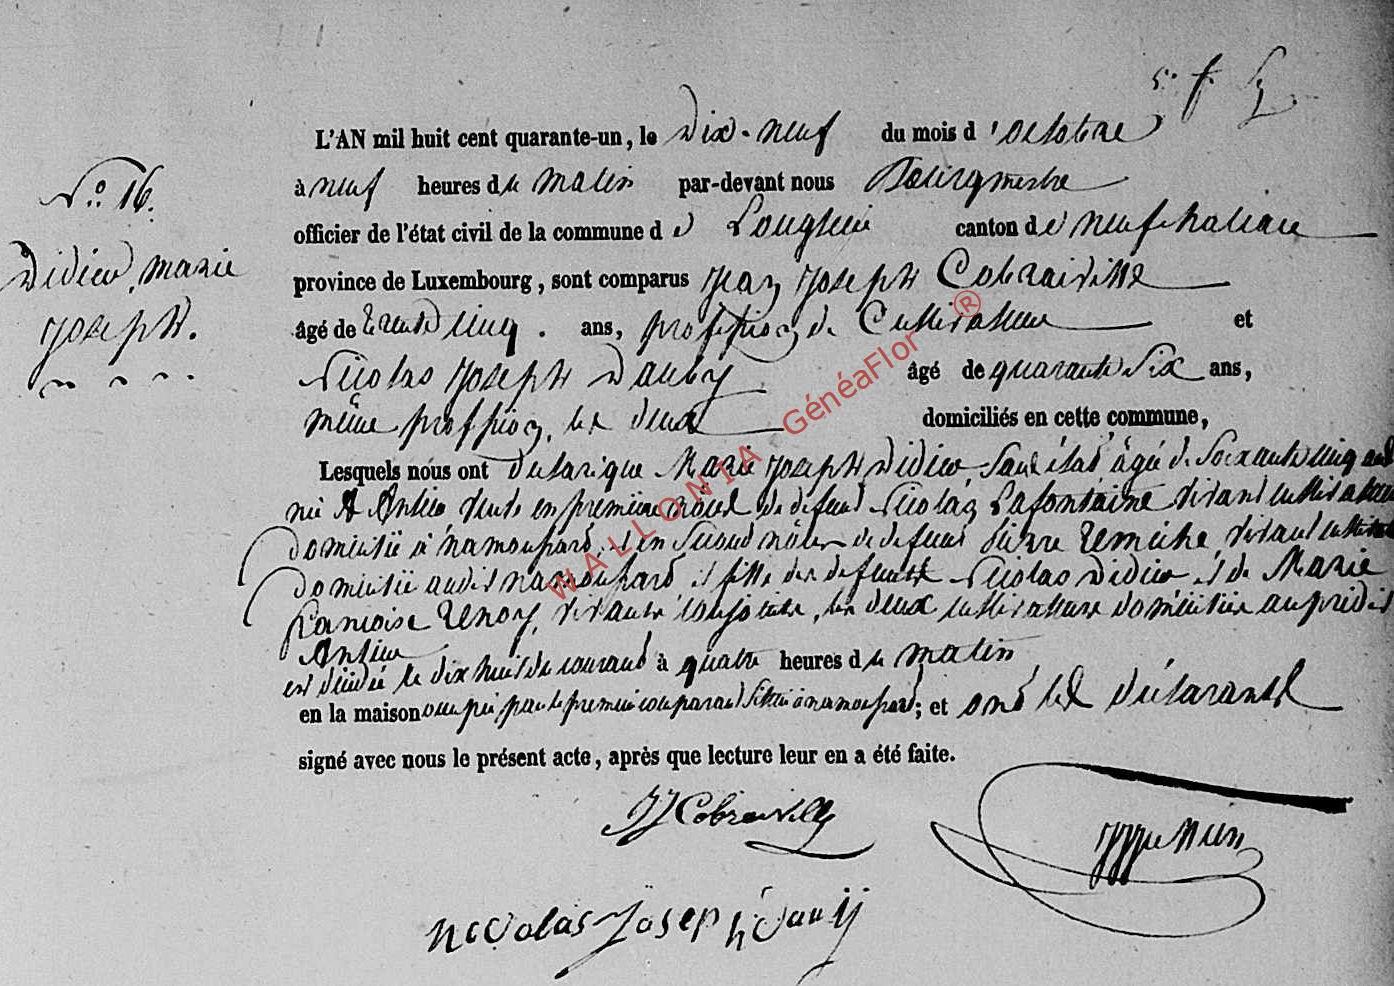 5. f.
L'AN mil huit cent quarante-un, le Dix-neuf du mois d'octobre
à neuf heures du matin par-devant nous Bourgmestre
No. 16.
officier de l'état civil de la commune de Longlier canton de neufchateau
Didier, marie
province de Luxembourg, sont comparus Jean Joseph Cobraiville
joseph.
âgé de trente cinq. ans, profession de Cultivateur et
Nicolas Joseph Dauby âgé de quarante six ans,
même profession, les deux domiciliés en cette commune,
Lesquels nous ont déclarique Marie Joseph Didier Sans état âgée de soixante cinq ans
née à Anlier veuve en première nôces de defunt Nicolas Lafontaine vivant cultivateur
domicilié à namoussart et en second nôces de defunt pierre temiche, vivant cultivateur
domicilié audit namoussart et fille des defunts Nicolas Didier et de Marie
françoise Zenon, vivants conjoints, les deux cultivateurs domiciliés au prédit
Anlier
est décédée le dix huit du courant à quatre heures du matin
en la maison occupée par le premier comparant située à namoussart; et ont les déclarants
signé avec nous le présent acte, après que lecture leur en a été faite.
JJ Cobraiville
Nicolas Joseph Dauby
WALLONIA GénéaFlor ®